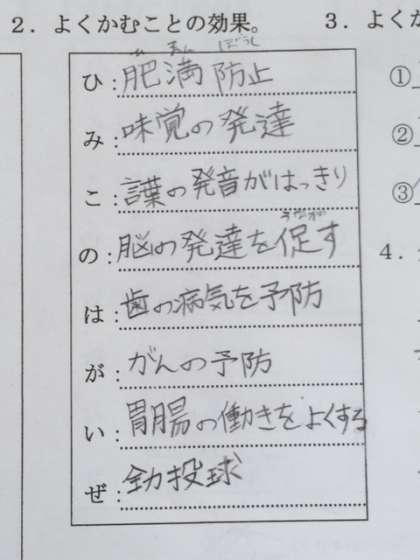 2．よくかむことの効果。
3．よくか
ひ：肥満防止
み：味覚の発達
①
②
こ：言葉の発音がはっきり
③
の：脳の発達を促す
4．
は：歯の病気を予防
が：がんの予防
い：胃腸の働きをよくする
ぜ：全力投球